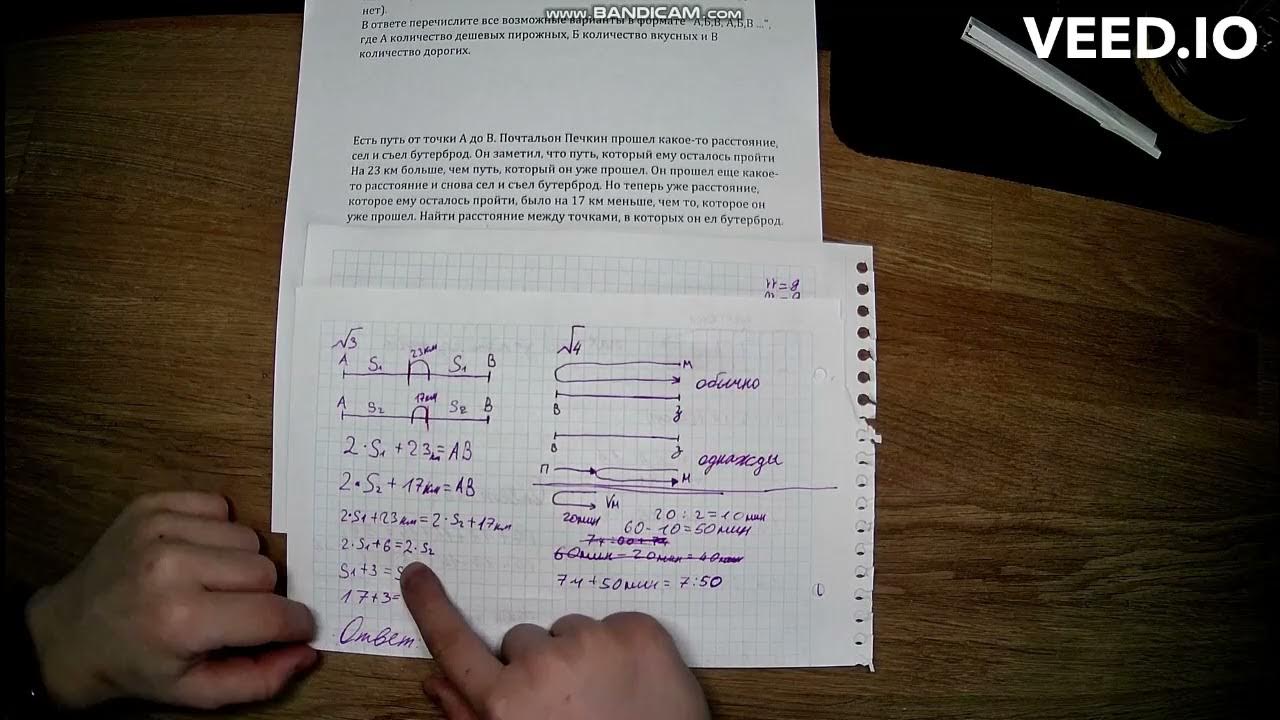 www.BANDICAM.com
VEED.IO
нет).
В ответе перечислите все возможные варианты в формате "А,Б,В, А,Б,В ...",
где А количество дешевых пирожных, Б количество вкусных и В
количество дорогих.
Есть путь от точки А до В. Почтальон Печкин прошел какое-то расстояние,
сел и съел бутерброд. Он заметил, что путь, который ему осталось пройти
На 23 км больше, чем путь, который он уже прошел. Он прошел еще какое-
то расстояние и снова сел и съел бутерброд. Но теперь уже расстояние,
которое ему осталось пройти, было на 17 км меньше, чем то, которое он
уже прошел. Найти расстояние между точками, в которых он ел бутерброд.
n=8
√3
A S₁ 23км S₁ B
A S₂ 17км S₂ B
2·S₁+23=AB
2·S₂+17км=AB
2·S₁+23км=2·S₂+17км
2·S₁+6=2·S₂
S₁+3=
17+3=
Ответ
√4
М
обычно
В
З
В
З
однажды
П
М
Vм
20мин
20:2=10мин
60-10=50мин
60мин-20мин=40мин
7ч+50мин=7:50